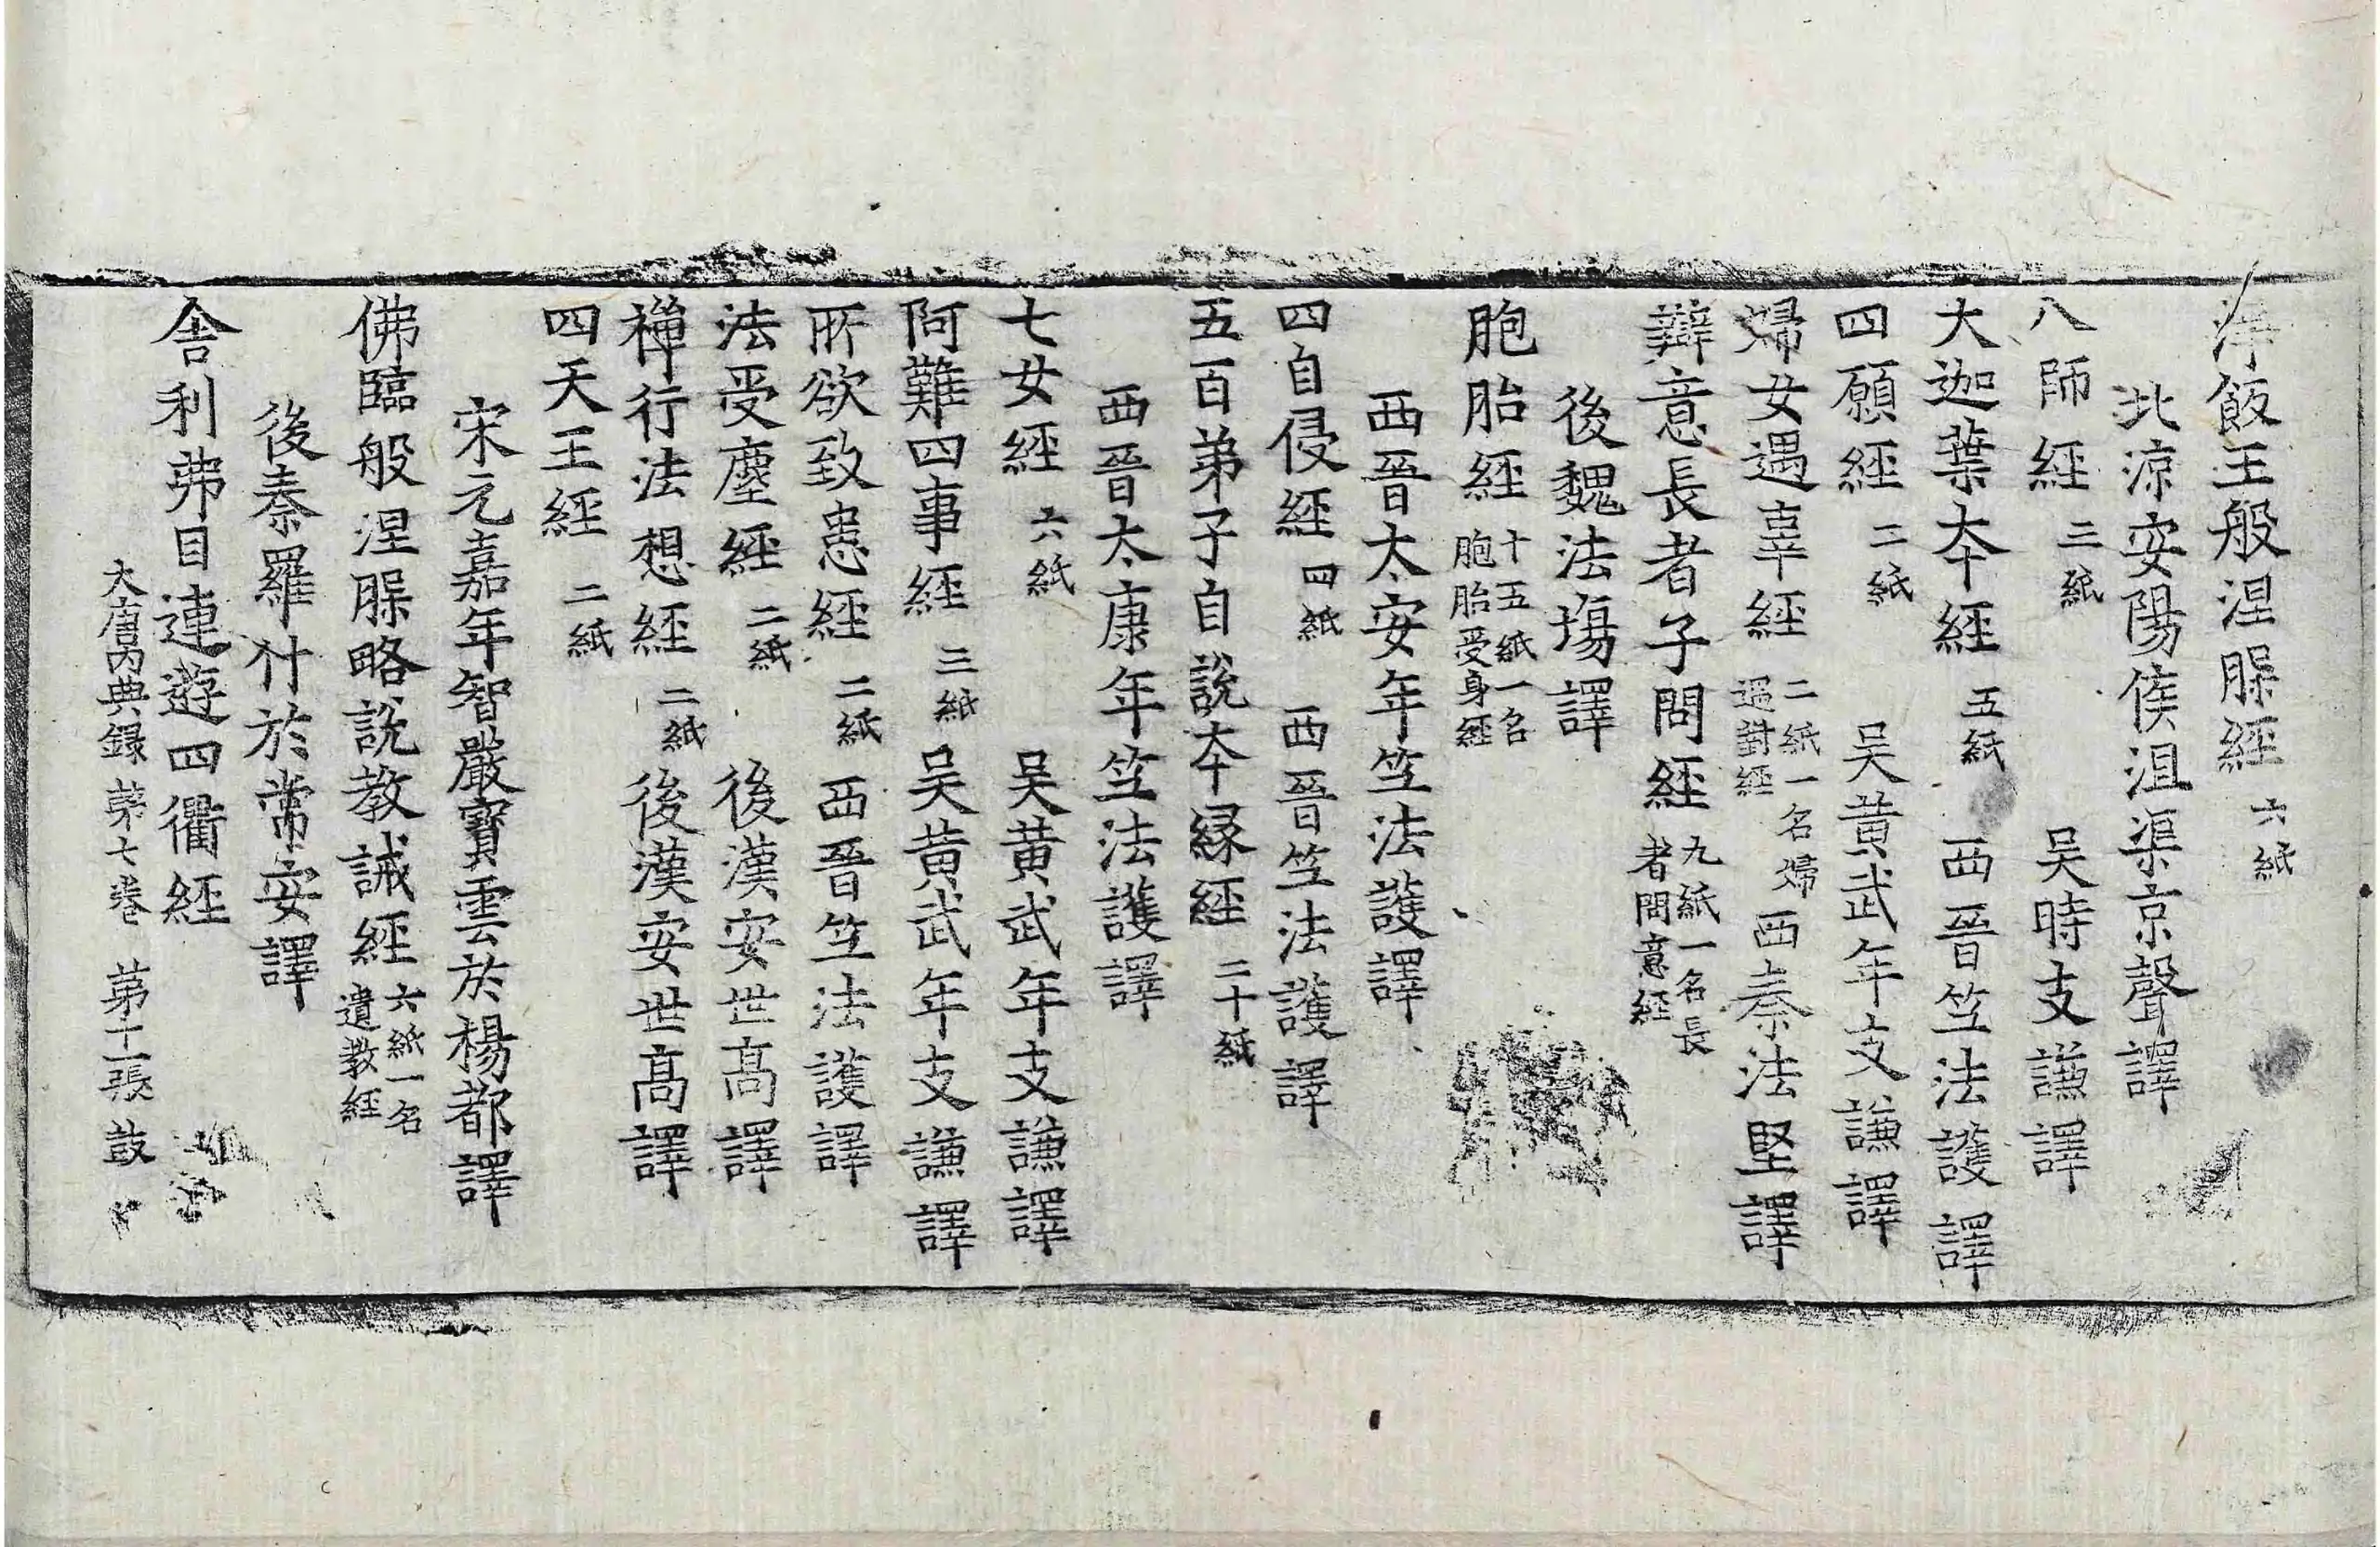 淨飯王般涅脲經 六紙
北涼安陽侯沮渠京聲譯
八師經 三紙 吴時支謙譯
大迦葉夲經 五紙 西晉竺法護譯
四願經 二紙 吴黄武年支謙譯
婦女遇辜經 二紙一名婦遇對經 西秦法堅譯
辯意長者子問經 九紙一名長者問意經
後魏法場譯
胞胎經 十五紙一名胞胎受身經
西晉太安年竺法護譯
四自侵經 四紙 西晉竺法護譯
五百弟子自說夲縁經 二十紙
西晉太康年竺法護譯
七女經 六紙 吴黄武年支謙譯
阿難四事經 三紙 吴黄武年支謙譯
所欲致患經 二紙 西晉竺法護譯
法受塵經 二紙 後漢安世高譯
禪行法想經 二紙 後漢安世高譯
四天王經 二紙
宋元嘉年智嚴寶雲於楊都譯
佛臨般涅脲略說教誡經 六紙一名遺教經
後秦羅什於常安譯
舍利弗目連遊四衢經
大唐内典録苐七卷 苐十一張 鼓